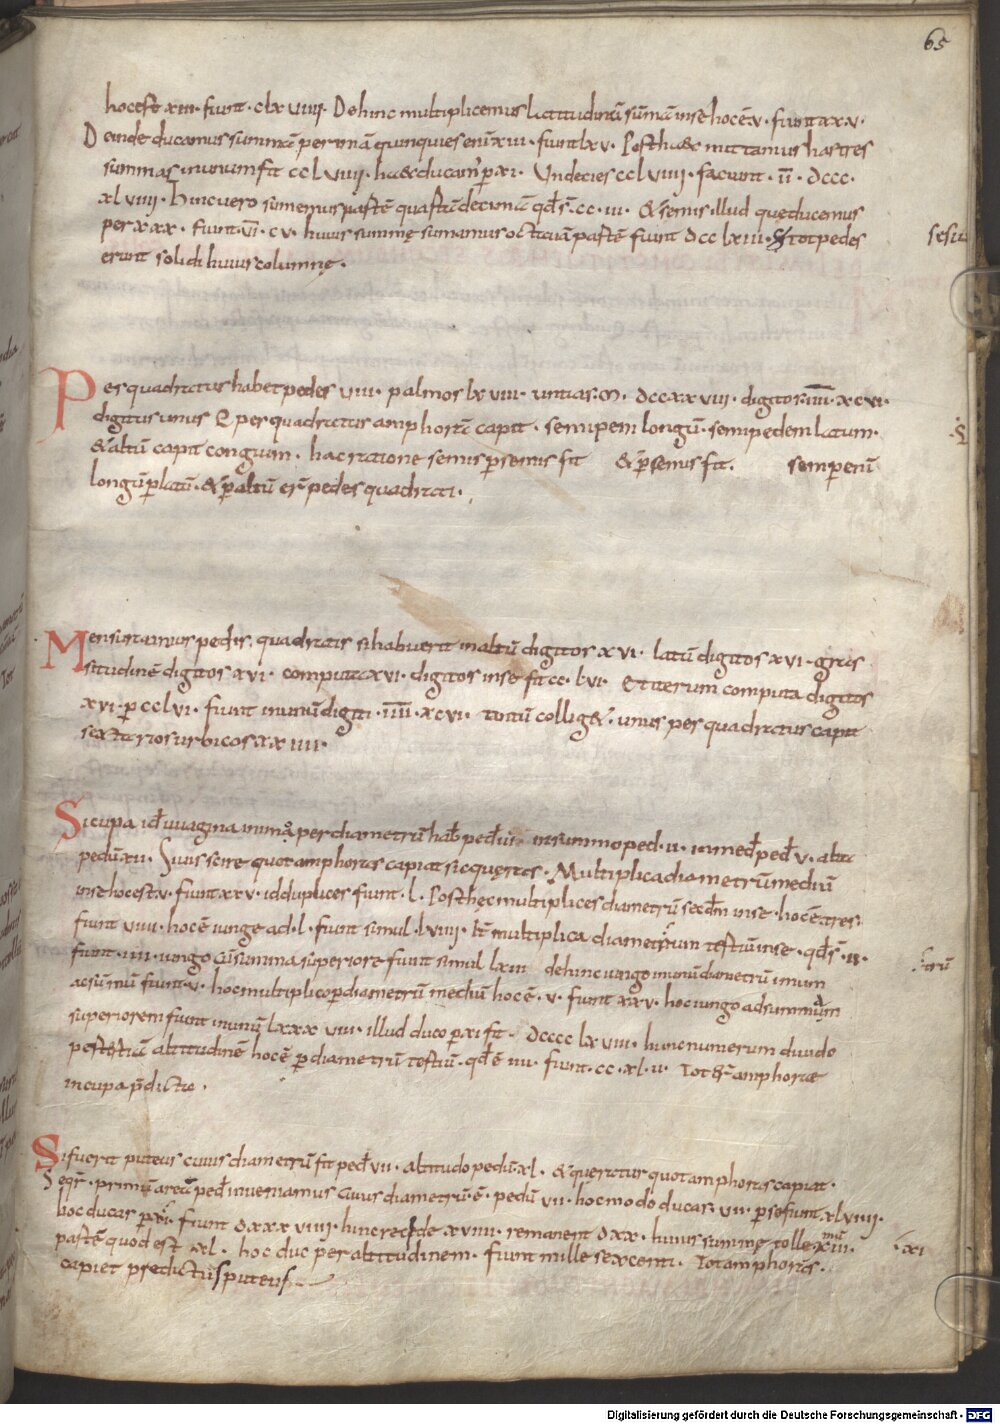 65
hoc est xiii · fiunt · clxviiii · Dehinc multiplicemus latitudinū sūmā in se hoc ē v · fiunt xxv ·
Deinde ducamus summā per unā quinquies enī xiii · fiunt lxv · Post hęc mittamus has tres
summas · in unum fit cclviiii · hęc ducam̄ ꝑ xi · Undecies cclviiii · faciunt · īī · dccc ·
xlviiii · Hinc vero sumemus partē quartādecimā qđ s̄ · cc · iii · & semis · illud quę ducemus
per xxx · fiunt v̄ī · cv · huius summę sumamus octavā partē fiunt dcclxiii · tot pedes
sesu
erunt solidi huius columnę ·
Pes quadratus habet pedes viiii · palmos lxviiii · untias · m · dccxxviii · digitos · īīīī · xcvi ·
digitus unus Pes quadratus amphorā capit · semipem longū · semipedem latum ·
& altū capit congium · hac ratione semis ꝑ semis fit & ꝑ semis fit · semperū
longū ꝑ latū · & ꝑ altū er̄ pedes quadrati ·
Mensuramus pedes · quadratis si habuerit in altū digitos xvi · latū digitos xvi · gras
situdinē digitos xvi · computa xvi · digitos in se fit cc · lvi · Et iterum computa digitos
xvi · ꝑ cclvi · fiunt in unū digiti · īīīī · xcvi · tantū collig& · unus pes quadratus capit
sextarios urbicos xxiiii ·
Si cupa id̄ vuagina in imo per diametrū hab& ped̄ iii in summo ped · ii · in med̄ ped̄ v · altit
pedū xii · Si vis scire quot amphoras capiat sic quęras · Multiplica diametrū mediū
in se hoc est v · fiunt xxv · id duplices fiunt · l · Post hęc multiplices diametrū secd̄m in se · hoc ē tres ·
fiunt viiii · hoc ē iunge ad · l · fiunt simul · lviiii · It̄ multiplica diametrum tertiū in se · qđ s̄ · ii ·
fiunt · iiii · iungo cū summa superiore fiunt simul lxiii dehinc iungo in unū diametrū imum
: trū
ac sūmū fiunt · v · hoc multiplico ꝑ diametrū mediū hoc ē · v · fiunt xxv · hoc iungo ad summam
superiorem fiunt in unū lxxxviii · illud duco ꝑ xi fit · dcccclxviii · hunc numerum divido
per tertiā altitudinē hoc ē ꝑ diametrū tertiū · qđ ē iiii · fiunt · cc · xl · ii · Tot er̄ amphorae
in cupa p̄dicta ·
Si fuerit puteus cuius diametrū sit ped̄ vii · altitudo pedū xl · & queratur quot amphoras capiat ·
Seqr̄ · primū areā ped̄ inveniamus cuius diametrū · ē · pedū vii · hoc modo ducas vii · ꝑ se fiunt xlviiii ·
hoc ducas ꝑ xi · fiunt dxxxviiii · hinc recede xviiii · remanent dxx · huius summę tolle xiii ·
: xi
partē quod est xl · hoc duc per altitudinem · fiunt mille sexcenti · Tot amphoras ·
capiet predictus puteus
Digitalisierung gefördert durch die Deutsche Forschungsgemeinschaft - DFG